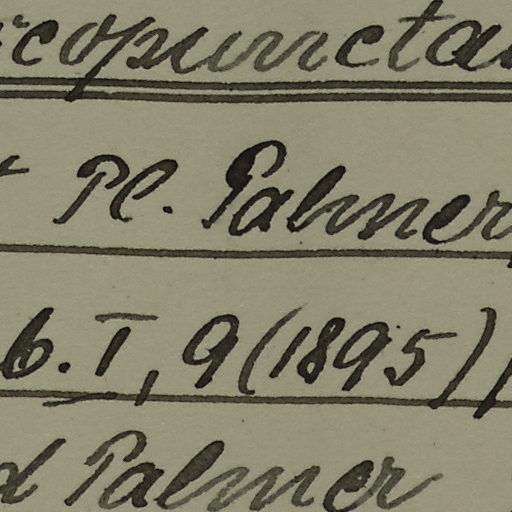 icopuncta
Pl. Palmer,
b. I, 9 (1895),
d Palmer